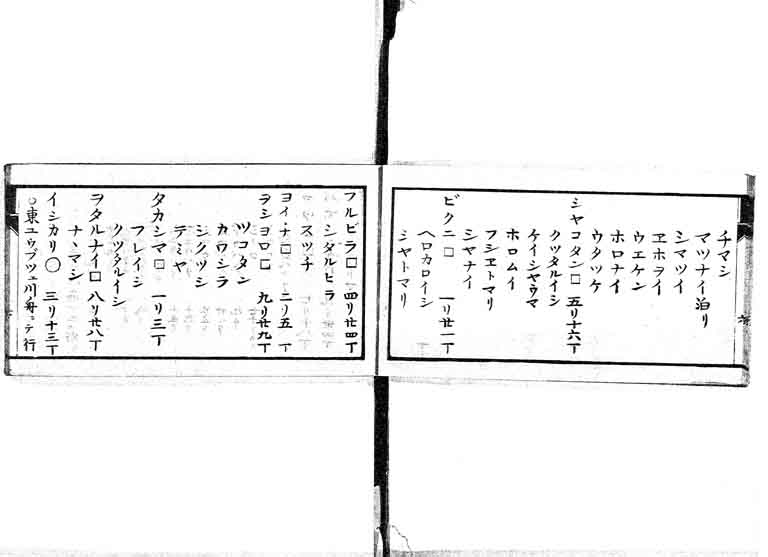 チマシ
マツナイ泊リ
シマツイ
ヱホライ
ウエケン
ホロナイ
ウタツケ
シヤコタン□ 五リ十六丁
クツタルイシ
ケイシヤウマ
ホロムイ
フシヱトマリ
シヤナイ
ビクニ□ 一リ廿一丁
ヘロカロイシ
シヤトマリ
フルビラ□ 四リ廿四丁
シタルヒラ
スツチ
ヨイチ□ 二リ五丁
ヲシヨロ□ 九リ廿九丁
ツコタン
カワシラ
シクツシ
テミヤ
タカシマ□ 一リ三丁
フレイシ
クツタルイシ
ヲタルナイ□ 八リ廿八丁
ナヽマシ
イシカリ○ 三リ十三丁
○東ユウブツヱ川舟ニテ行